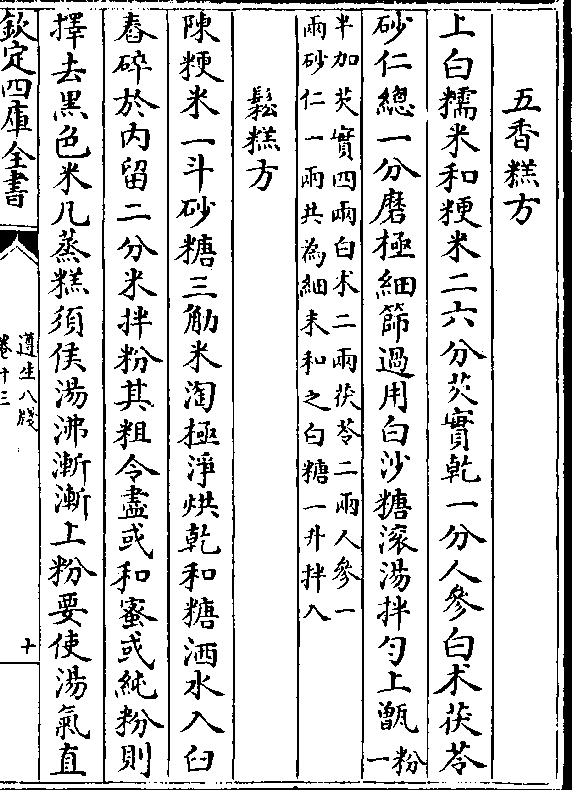 五香糕方
上白糯米和粳米二六分芡實乾一分人參白术茯苓
砂仁總一分磨極細篩過用白沙糖滚湯拌勻上甑一粉
半加芡實四兩白术二兩茯苓二兩人參一
兩砂仁一兩共為細末和之白糖一升拌入
鬆糕方
陳粳米一斗砂糖三觔米淘極淨烘乾和糖洒水入臼
舂碎於内留二分米拌粉其粗令盡或和蜜或純粉則
擇去黒色米凡蒸糕須候湯沸漸漸上粉要使湯氣直
欽定四庫全書
遵生八牋
卷十三
十